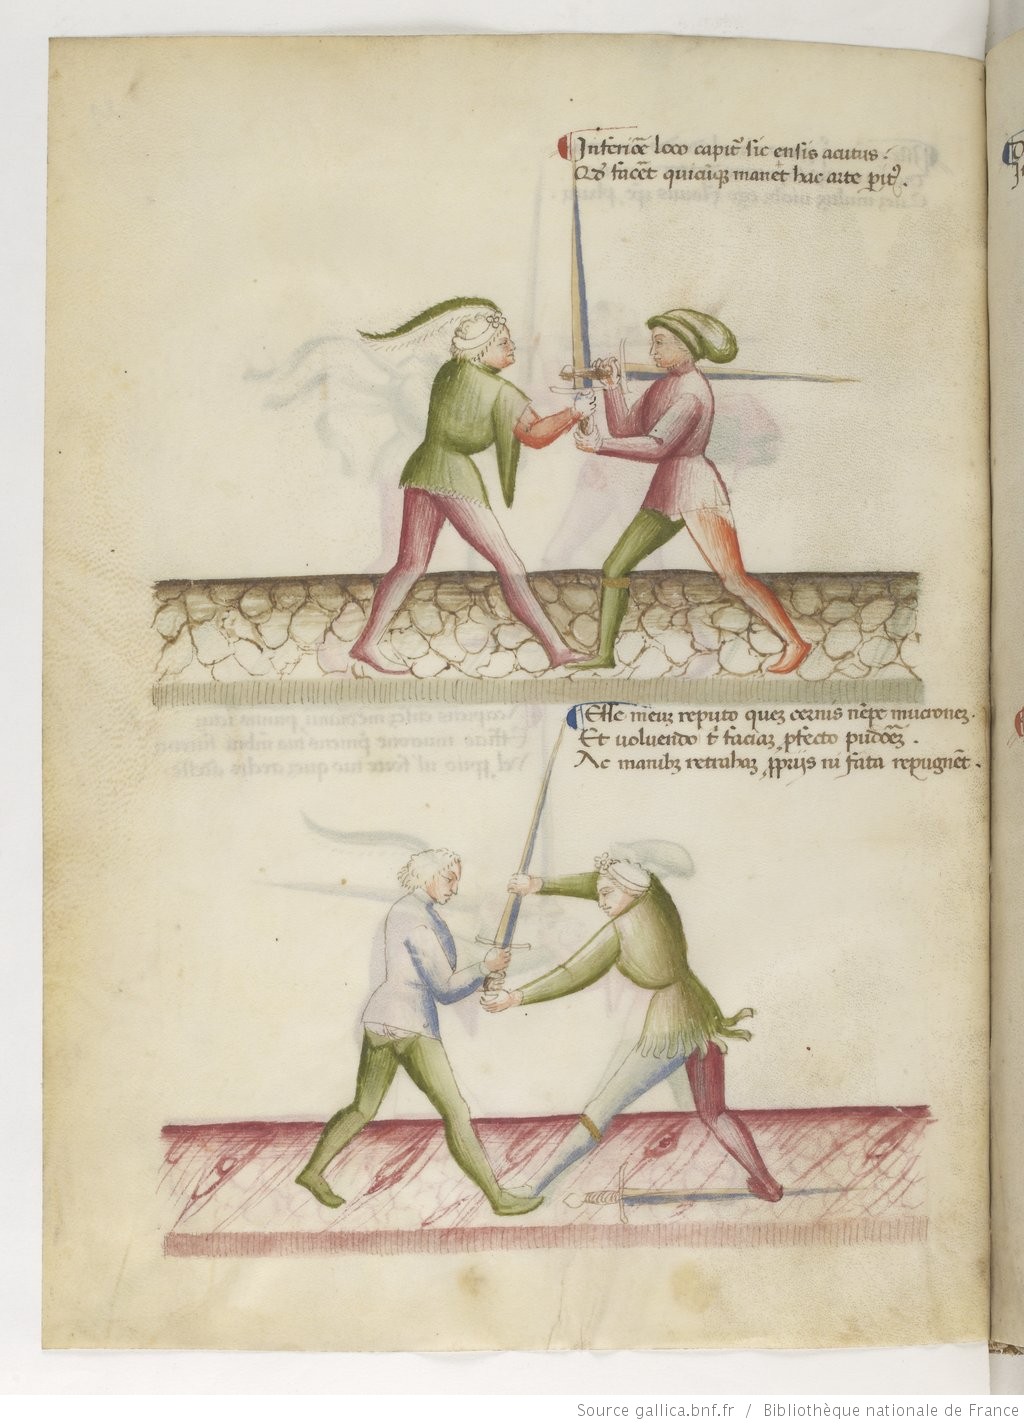 Inferiõe loco capit᷑ sic ensis acutus .
Qđ facẽt quicũq̣ manet hac arte ꝑit᷑ .
Esse meuʒ reputo queʒ cernis nẽpe mucroneʒ .
Et uoluendo t᷑ faciaʒ ꝓfecto pudorẽʒ .
Ac manibʒ retrahaʒ ꝓprijs ni fata repugnẽt .
Source gallica.bnf.fr / Bibliothèque nationale de France